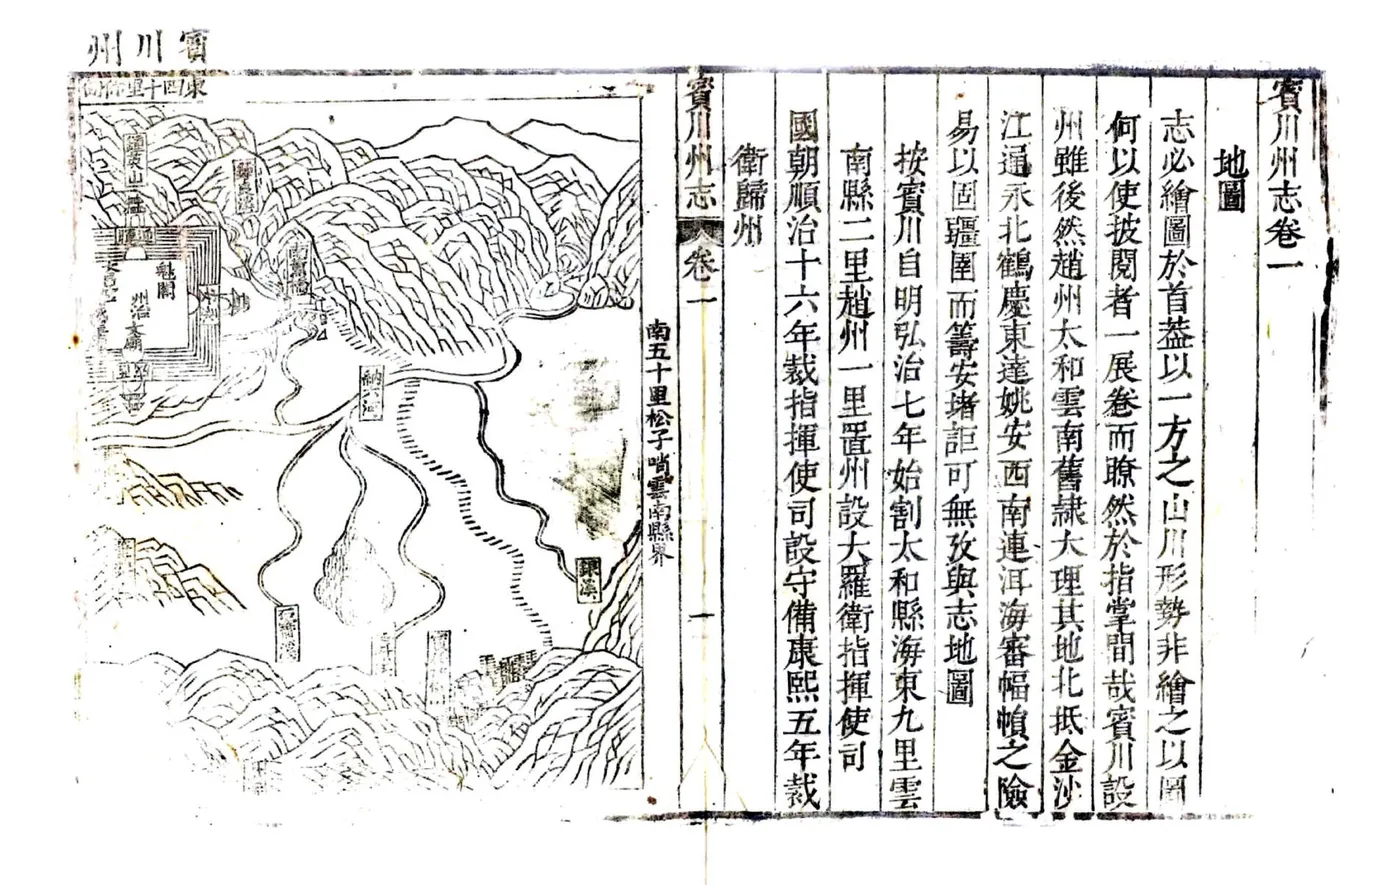 賓川州志卷一
地圖
志必繪圖於首葢以一方之山川形勢非繪之以圖
何以使披閱者一展卷而瞭然於指掌間哉賓川設
州雖後然趙州太和雲南舊隷大理其地北抵金沙
江通永北鶴慶東達姚安西南連洱海審幅幀之險
易以固疆圉而籌安堵詎可無攷與志地圖
按賓川自明弘治七年始割太和縣海東九里雲
南縣二里趙州一里置州設大羅衛指揮使司
國朝順治十六年裁指揮使司設守備康熙五年裁
衛歸州
賓川州志
卷一
一
南五十里松子哨雲南縣界
賓川州
鍾英山
南薰橋
納六河
銀溪
魁閣
州治
文廟